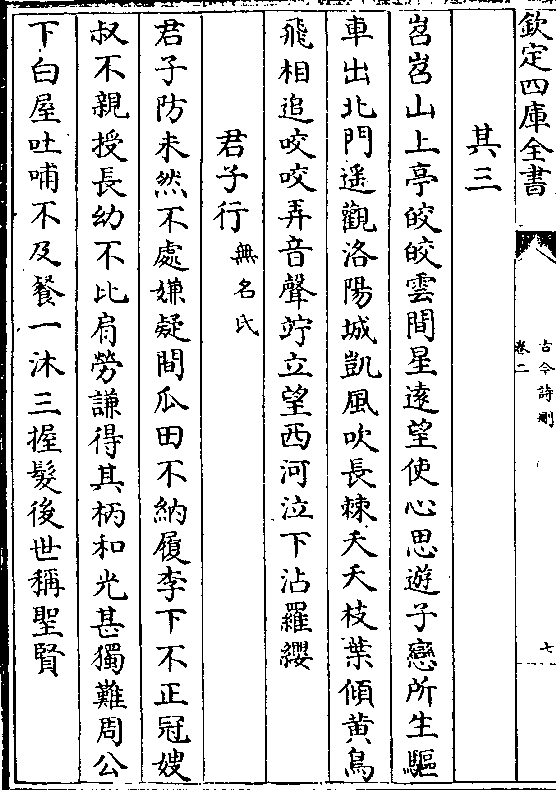 欽定四庫全書
古今詩刪
卷二
七
其三
岧岧山上亭皎皎雲間星逺望使心思遊子戀所生驅
車出北門遥觀洛陽城凱風吹長棘夭夭枝葉傾黄鳥
飛相追咬咬弄音聲竚立望西河泣下沾羅纓
君子行無名氏
君子防未然不處嫌疑間瓜田不納履李下不正冠嫂
叔不親授長幼不比肩勞謙得其柄和光甚獨難周公
下白屋吐哺不及餐一沐三握髮後世稱聖賢